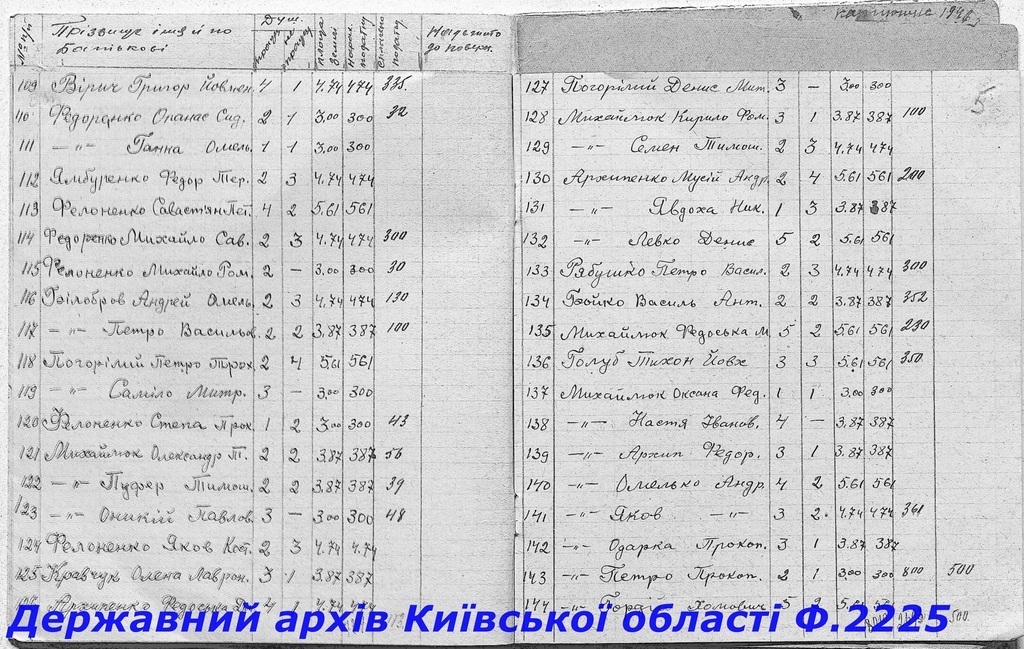 № п/п Прізвище імя й по Батькові Душ. працезд. не працезд. площа Землі норах. податку сплачено податку
109 Вірич Григор Йовхим. 4 1 4.74 474 335.
110 Федоренко Опанас Сид. 2 1 3,00 300 32
111 —"— Ганка Омель. 1 1 3,00 300
112 Ямбуренко Федор Тер. 2 3 4.74 474
113 Фелоненко Савастян Пет. 4 2 5,61 561
114 Федоренко Михайло Сав. 2 3 4.74 474 300
115 Фелоненко Михайло Ром. 2 — 3,00 300 30
116 Білобров Андрей Омель. 2 3 4,74 474 130
117 —"— Петро Васильов. 2 2 3,87 387 100
118 Погорілий Петро Трох. 2 4 5,61 561
119 —"— Саміло Митр. 3 — 3,00 300
120 Фелоненко Степа Прок. 1 2 3,00 300 43
121 Михайлюк Олександр Т. 2 2 3,87 387 56
122 —"— Пуфер Тимош. 2 2 3,87 387 39
123 —"— Оникій Павлов. 3 — 3,00 300 48
124 Фелоненко Яков Кост. 2 3 4.74 4.74
125 Кравчук Олена Лаврон. 3 1 3.87 387
Архипенко Федоська 4 1 4.74
1946
5
127 Погорілий Денис Мит. 3 — 3,00 300
128 Михайлюк Кирило Ром. 3 1 3.87 387 100
129 —"— Семен Тимош. 2 3 4.74 474
130 Архипенко Мусій Андр. 2 4 5.61 561 200
131 —"— Явдоха Ник. 1 3 3.87 387
132 —"— Левко Денис 5 2 5.61 561
133 Рябушко Петро Васил. 2 3 4.74 474 300
134 Бойко Василь Ант. 2 2 3.87 387 352
135 Михайлюк Федоська М. 5 2 5.61 561 230
136 Голуб Тихон Йовх 3 3 5,61 561 350
137 Михайлюк Оксана Фед. 1 1 3,00 300
138 —"— Настя Іванов. 4 — 3,87 387
139 —"— Архип Федор. 3 1 3.87 387
140 —"— Омелько Андр. 4 2 5.61 561
141 —"— Яков —"— 3 2 4.74 474 361
142 —"— Одарка Прокоп. 3 1 3.87 387
143 —"— Петро Прокоп. 2 1 3,00 300 800 500
144 —"— 5 2 5.61 500.
Державний архів Київської області Ф.2225